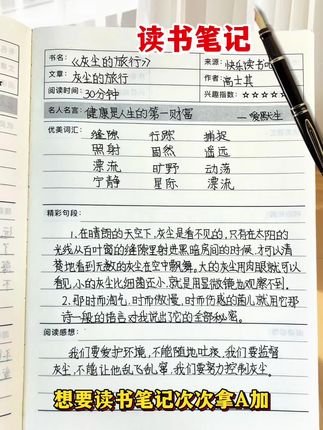 读书笔记
书名：《灰尘的旅行》 来源：快乐读书吧
文章：灰尘的旅行 作者：高士其
阅读时间：30分钟 兴趣指数：☆☆☆☆
名人名言：健康是人生的第一财富 —爱默生
优美词汇：
缝隙 行踪 捕捉
照射 固然 遥远
漂流 旷野 动荡
宁静 星际 漂流
精彩句段：
1.在晴朗的天空下，灰尘是看不见的，只有在太阳的
光线从百叶窗的缝隙里射进黑暗房间的时候，才可以清
楚地看到无数的灰尘在空中飘舞。大的灰尘用肉眼就可以
看见，小的灰尘比细菌还小，就是用显微镜也观察不到。
2.那时而淘气，时而傲慢，时而伤感的菌儿就用它那
诗一般的语言对我说出了它的全部秘密。
阅读感想：
我们要爱护环境，不能随地吐痰，我们要监督
灰尘，不能让他乱飞乱窜，我们要努力控制灰尘。
想要读书笔记次次拿A加